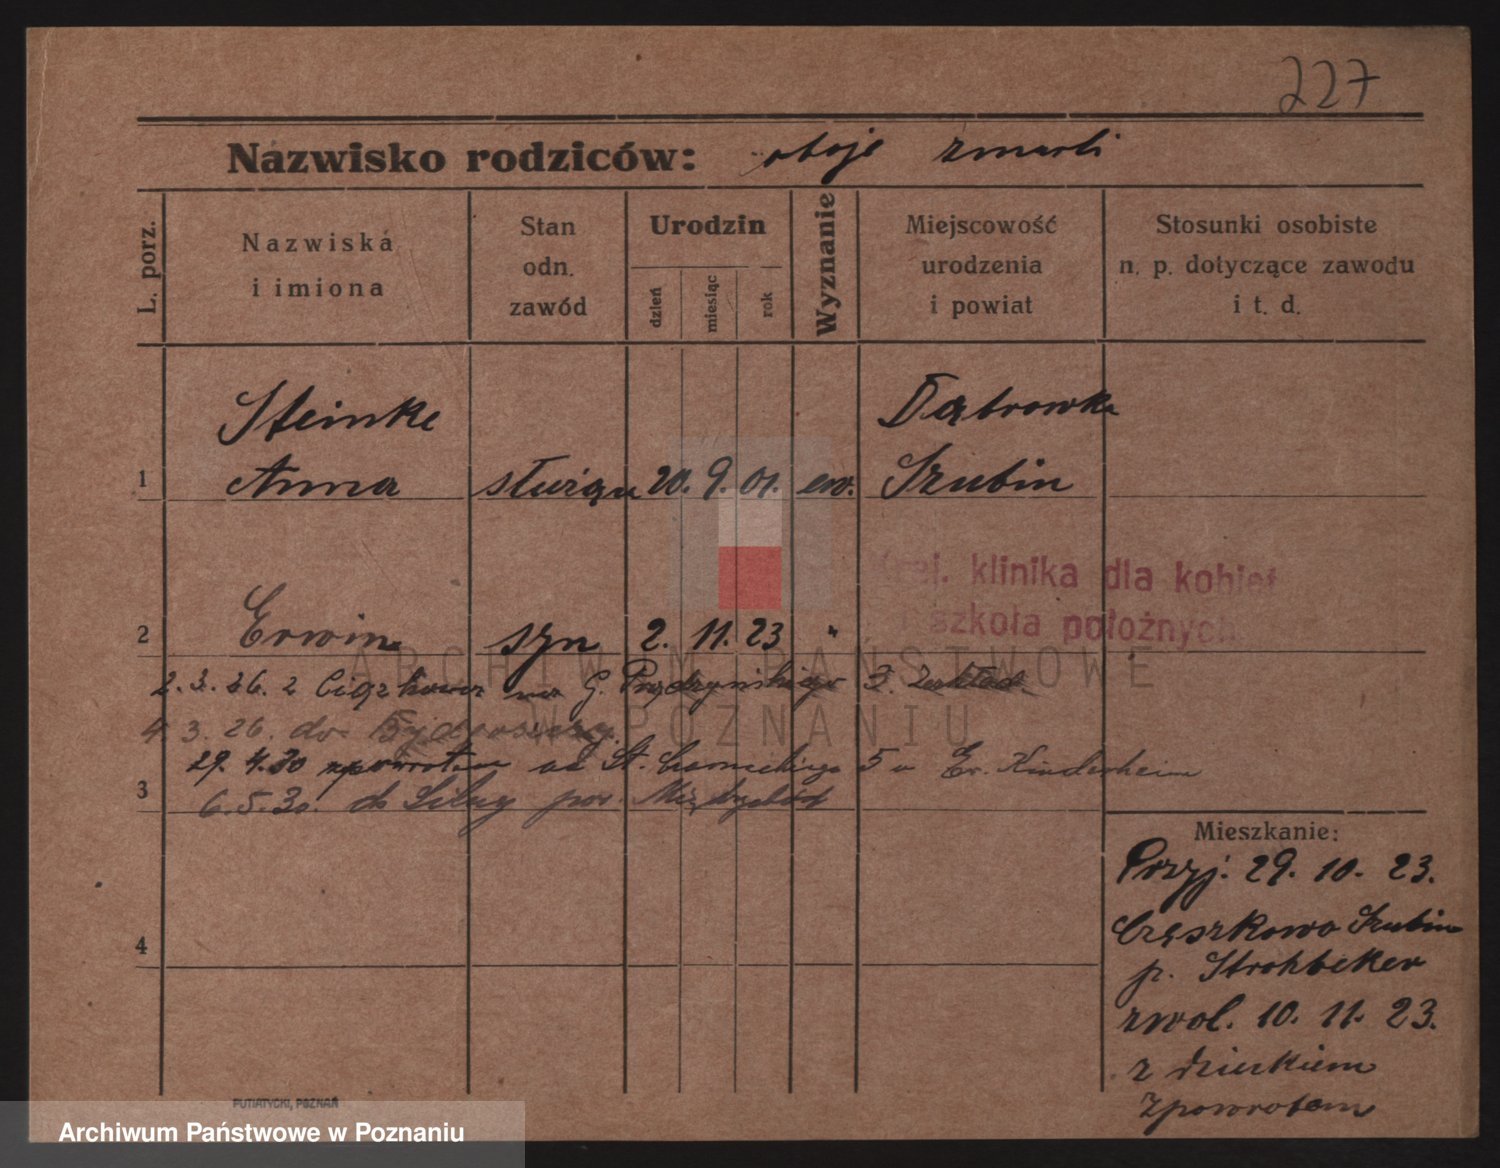 227
Nazwisko rodziców: oboje zmarli
L. porz.
Nazwiska i imiona
Stan odn. zawód
Urodzin
dzień
miesiąc
rok
Wyznanie
Miejscowość urodzenia i powiat
Stosunki osobiste n. p. dotyczące zawodu i t. d.
Steinke Dąbrowka
1 Anna służąca 20. 9. 01. ew. Szubin
klinika dla kobiet
szkoła położnych
2 Erwin syn 2. 11. 23 "
ARCHIWUM PAŃSTWOWE
W POZNANIU
2. 3. 26. z na G. Prądzyńskiego
4. 3. 26. do Bydgoszczy.
29. 4. 30 zpowrotem St. Czarneckiego 5 u Ev. Kinderheim
3 6. 5. 30. do pow. Międzychód
4
Mieszkanie:
Przyj. 29. 10. 23.
Szubin
p. Strohbeker
zwol. 10. 11. 23.
z dzieckiem
zpowrotem
PUTIATYCKI, POZNAŃ
Archiwum Państwowe w Poznaniu